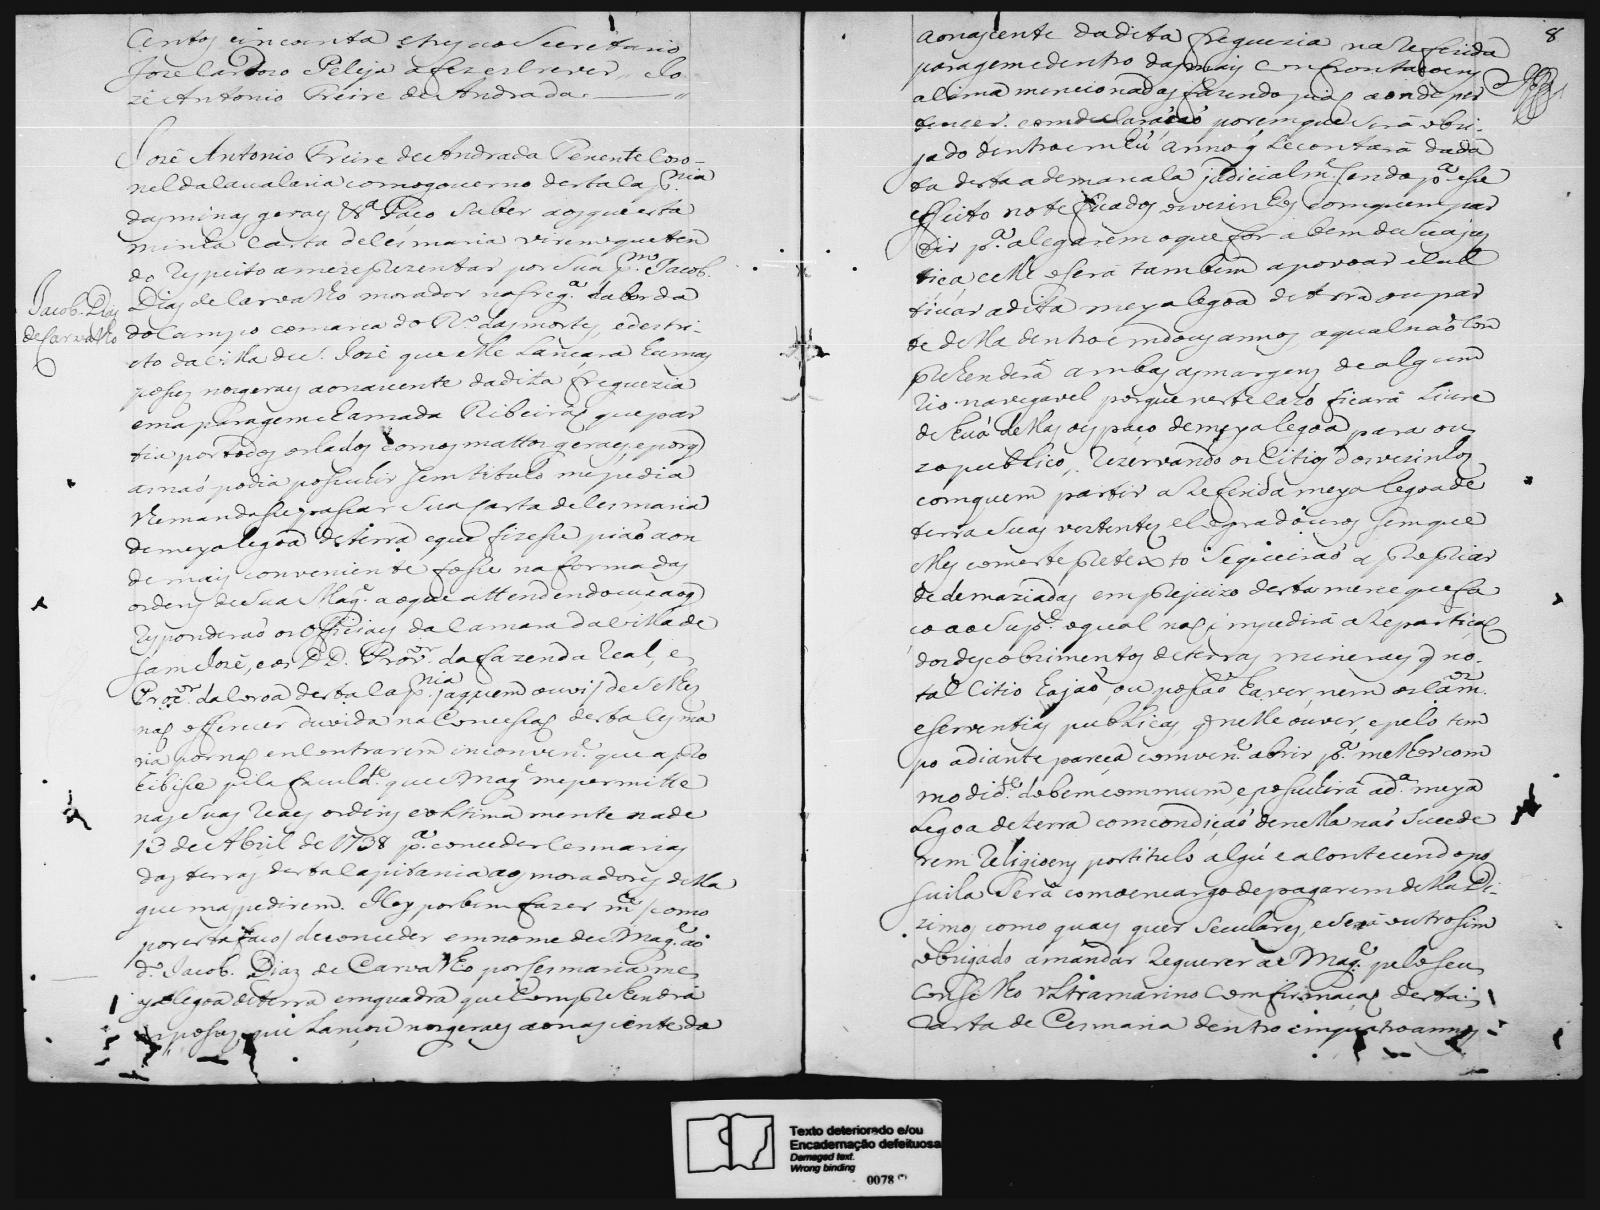 Centos cincoenta e tres o Secretario
Joze Cardozo Peleja a fez escrever,, Jo
zè Antonio Freire de Andrada.
Jozè Antonio Freire de Andrada Tenente Coro-
nel da Cavalaria como governo desta Cap.nia
das minas geraes &.a Faço saber aos que esta
minha Carta de Cesmaria virem que ten
do respeito a me reprezentar por sua p.m Jacob.
Dias de Carvalho morador na freg.a da borda
do Campo comarca do R.o das mortes, e destri-
cto da Villa de S. Jozè que elle Lançara humas
posses nos geraes ao nascente da dita freguezia
em a paragem chamada Ribeirão que par
tia por todos os lados com os mattos geraes, e porq
as não podia possuhir sem titulo me pedia
lhe mandasse passar sua Carta de Cesmaria
de meya legoa de terra e que fizesse pião aon
de mais conveniente fosse na forma das
ordens de Sua Mag.e ao que attendendo eu e ao q
responderão os officiaes da Camara da Villa de
Sam Jozè, e os D D. Prov.or da fazenda Real, e
Proc.or da Coroa desta Cap.nia /a quem ouvi/ de se lhes
não offerecer duvida na Concessão desta Cesma
ria por não encontrarem inconven.e que a pro
hibisse pela faculd.e que S. Mag.e me permitte
nas suas reaes ordens e ultima mente na de
13 de Abril de 1738 p.a conceder Cesmarias
das terras desta Capitania aos moradores della
que mas pedirem. Hey por bem fazer m.ce /como
por esta faço/ de conceder em nome de S. Mag.e ao
d.o Jacob. Diaz de Carvalho por Cesmaria me
ya legoa de terra em quadra que comprehendrá
as posses, que Lançou nos geraes ao nascente da
Jacob. Dias
de Carvalho
8
ao nascente da dita freguezia na referida
paragem e dentro das mais confrontaçoens
asima mencionadas fazendo pião aonde per
tencer. com declaração porem que será obri-
gado dentro em hũ anno q se contará da da
ta desta a demarcala judicialm.e sendo p.a esse
effeito noteficados os vezinhos com quem par
tir p.a alegarem o que for a bem de sua jus
tiça e elle o será tambem a povoar e cul
tivar a dita meya legoa de terra ou par
te della dentro em dous annos a qual não com
prehenderá ambas as margens de algum
rio navegavel porque neste cazo ficará livre
de huã dellas o espaço de meya legoa para o u
zo publico, rezervando os Citios dos vezinhos
com quem partir a referida meya legoa de
terra suas vertentes e logradouros sem que
elles com este pretexto se queirão apropriar
de demaziadas em prejuizo desta merce que fa
ço ao sup.e o qual não impedirá a repartição
dos descobrimentos de terras mineraes q no
tal Citio hajão, ou possão haver, nem os cam.os
e serventias publicas, q nelle ouver, e pelo tem
po adiante pareça conven.e abrir p.a melhor com
modid.e do bem commum, e possuirá a d.a meya
Legoa de terra com condição de nella não Succede
rem Religioens por titulo algũ e acontecendo po
suila Será com o encargo de pagarem della Di-
zimos como quaes quer Seculares, e será outro sim
obrigado a mandar requerer a S. Mag.e pelo seu
Conselho ultramarino confirmação desta
Carta de Cesmaria dentro em quatro annos
Texto deteriorado e/ou
Encadernação defeituosa
Damaged text.
Wrong binding
0078